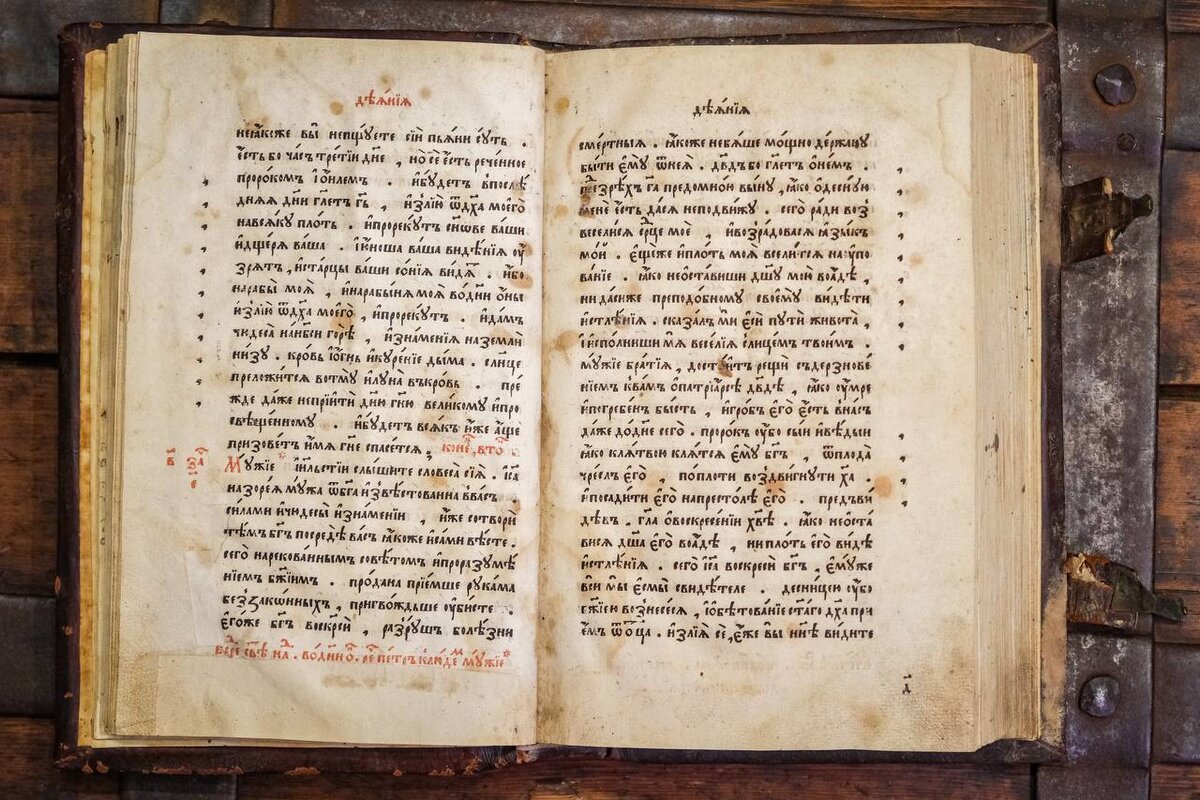 дѣѧ́нїѧ
не ꙗ҆́коже вы̀ непщꙋ́ете сїи̑ пьѧ́ни сꙋ́ть .
є҆́сть бо ча́съ тре́тїи дн҃е , но сѐ є҆́сть рече́нное
проро́комъ і҆ѡи́лемъ . и҆ бꙋ́детъ в послѣ
днѧѧ дн҃и гл҃етъ гь҃ , и҆злїю̀ ѿ дх҃а моего̀
на всѧ́кꙋ пло́ть . и҆ прорекꙋ́тъ сн҃ове ва́ши
и҆ дще́рѧ ва́ша . и҆ ю҆́ноша ва́ша видѣ́нїѧ оу҆́
зрѧтъ , и҆ ста́рцы ва́ши со́нїѧ ви́дѧ . и҆́бо
на рабы̀ моѧ̀ , и҆ на рабы́нѧ моѧ̀ во дн҃и ѻ҆ны
и҆злїю̀ ѿ дх҃а моего̀ , и҆ прорекꙋ́тъ . и҆ да́мъ
чюдеса̀ на нб҃си горѣ̀ , и҆ зна́менїѧ на землѝ
ни́зꙋ . кро́вь и҆ ѻ҆́гнь и҆ кꙋре́нїе ды́ма . сл҃нце
преложи́тсѧ во тмꙋ̀ и҆ лꙋна̀ въ кро́вь . пре́
жде да́же не прїи́ти дн҃ю гн҃ю вели́комꙋ и҆ про
свѣще́нномꙋ . и҆ бꙋ́детъ всѧ́къ и҆́же а҆́ще
призове́тъ и҆́мѧ гн҃е спасе́тсѧ . коне́ц , вто
Мꙋ́жїе і҆и҃льстїи слы́шите словеса̀ сїѧ̀ . і҆с҃а
назоре́ѧ мꙋ́жа ѿ бг҃а и҆звѣ́стованна в ва́съ .
си́лами и҆ чюдесы̀ и҆ зна́менїи , и҆́же сотворѝ
тѣ́мъ бг҃ъ посредѣ̀ ва́съ ꙗ҆́коже и҆ са́ми вѣ́сте .
сего̀ нарекова́ннымъ совѣ́томъ и҆ проразꙋмѣ́
нїемъ бж҃їимъ . про́дана прїе́мше рꙋка́ма
без̾зако́нныхъ , пригво́ждьше оу҆би́сте .
є҆го́же бг҃ъ воскресѝ , разрꙋ́шь болѣ́зни
дѣѧ́нїѧ
сме́ртныѧ . ꙗ҆́коже не бѧ́ше мо́щно держа́щꙋ
бы́ти є҆мꙋ̀ ѿ неѧ̀ . дв҃дъ бо гл҃етъ ѻ҆ не́мъ .
предзрѣ́хъ гд҃а предо мно́ю вы́нꙋ , ꙗ҆́ко ѻ҆деснꙋ́ю
менѐ є҆́сть да сѧ̀ не подви́жꙋ . сего̀ ра́ди воз̾
весели́сѧ ср҃це моѐ , и҆ возра́довасѧ ꙗ҆зы́къ
мо́й . є҆ще́же и҆ пло́ть моѧ̀ всели́тсѧ на оу҆по
ва́нїе . ꙗ҆́ко не ѡ҆ста́виши дш҃ꙋ мою̀ во а҆́дѣ ,
ни да́си же преподо́бномꙋ своемꙋ̀ ви́дѣти
и҆стлѣ́нїѧ . сказа́лъ ми є҆сѝ пꙋти̑ живота̀ ,
и҆ спо́лниши мѧ̀ весе́лїѧ с лице́мъ твои́мъ .
мꙋ́жїе бра́тїѧ , досто́итъ рещѝ съ дерзнове́
нїемъ к ва́мъ ѻ҆ патрїа́рсѣ дв҃дѣ , ꙗ҆́ко оу҆́мре
и҆ погребе́нъ бы́сть , и҆ гро́бъ є҆го̀ є҆́сть в на́съ
да́же до дне сего̀ . проро́къ оу҆́бо сы́и и҆ вѣ́дыи
ꙗ҆́ко клѧ́твою клѧ́тсѧ є҆мꙋ̀ бг҃ъ , ѿ плода̀
чре́слъ є҆го̀ , по пло́ти воздви́гнꙋти х҃а .
и҆ посади́ти є҆го̀ на престо́лѣ є҆го̀ . предъви́
дѣвъ . гл҃а ѻ҆ воскресе́нїи хв҃ѣ . ꙗ҆́ко не ѡ҆ста́
висѧ дш҃а є҆го̀ во а҆́дѣ , ни пло́ть є҆го̀ ви́дѣ
и҆стлѣ́нїѧ . сего̀ і҆с҃а воскресѝ бг҃ъ , є҆мꙋ́же
всѝ мы̀ є҆смы̀ свидѣ́теле . десни́цею оу҆́бо
бж҃їею вознесе́сѧ , и҆ ѻ҆бѣтова́нїе ст҃а́го дх҃а при
е́мъ ѿ ѻ҆ц҃а . и҆злїѧ̀ се , є҆́же вы̀ нн҃ѣ ви́дите